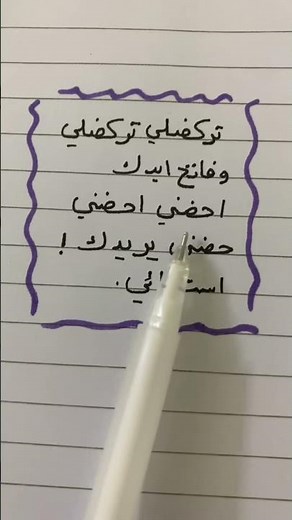 تركضلي تركضلي
وفاتح ايدك
احضني احضني
حضني يريدك !